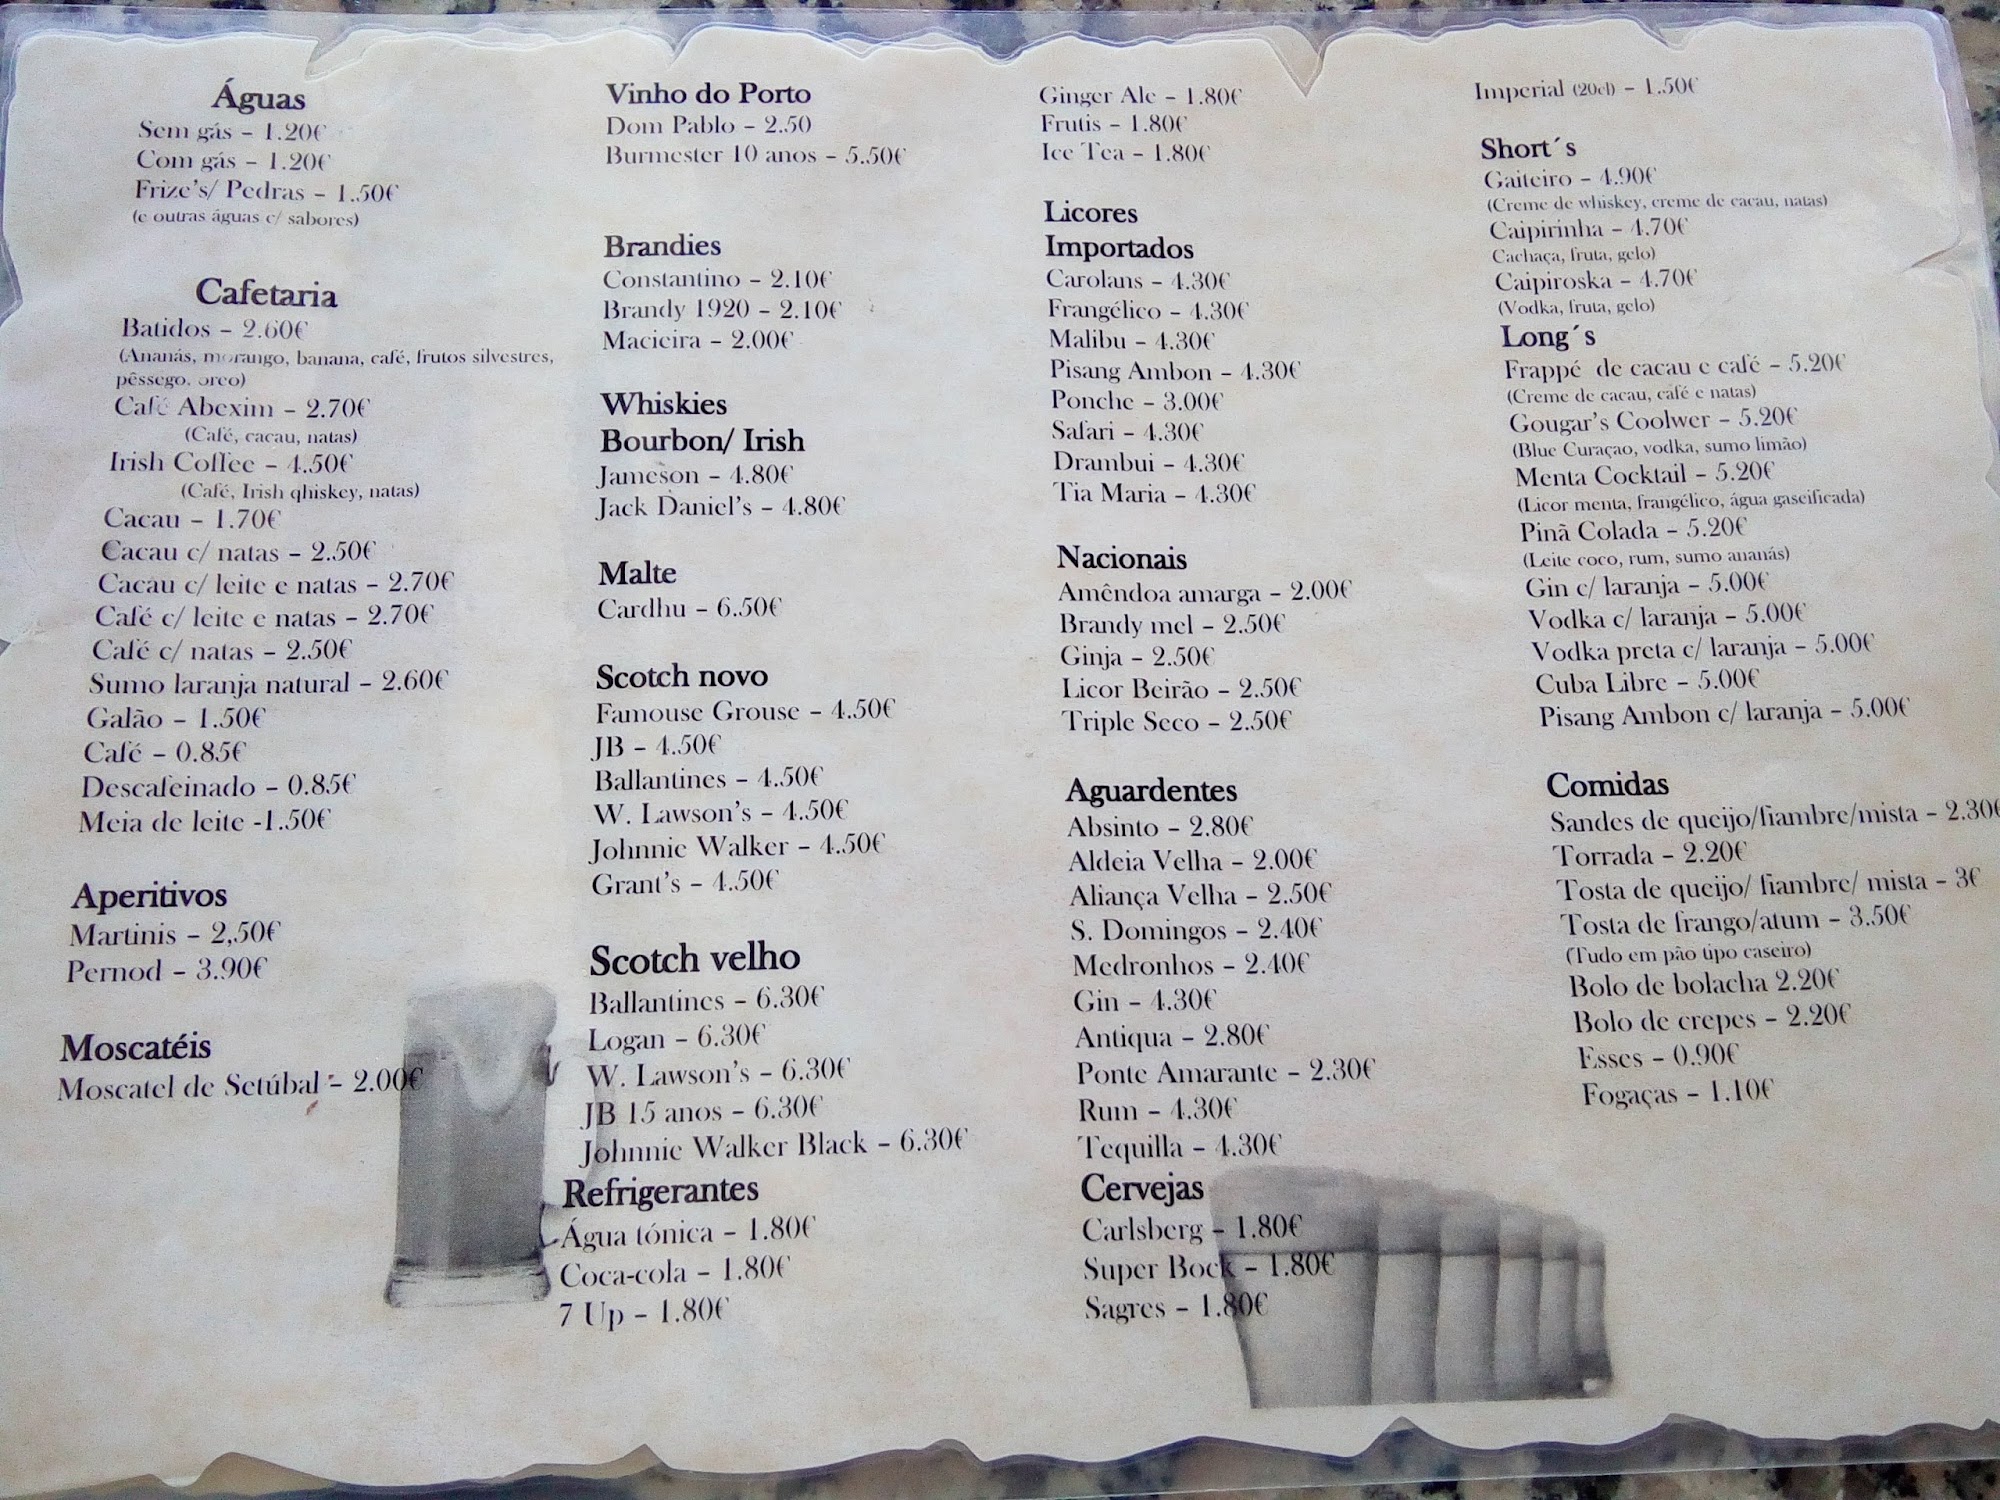 Águas
Sem gás – 1.20€
Com gás – 1.20€
Frize's/ Pedras – 1.50€
(e outras águas c/ sabores)
Cafetaria
Batidos – 2.60€
(Ananás, morango, banana, café, frutos silvestres,
pêssego, oreo)
Café Abexim – 2.70€
(Café, cacau, natas)
Irish Coffee – 4.50€
(Café, Irish qhiskey, natas)
Cacau – 1.70€
Cacau c/ natas – 2.50€
Cacau c/ leite e natas – 2.70€
Café c/ leite e natas – 2.70€
Café c/ natas – 2.50€
Sumo laranja natural – 2.60€
Galão – 1.50€
Café – 0.85€
Descafeinado – 0.85€
Meia de leite -1.50€
Aperitivos
Martinis – 2,50€
Pernod – 3.90€
Moscatéis
Moscatel de Setúbal – 2.00€
Vinho do Porto
Dom Pablo – 2.50
Burmester 10 anos – 5.50€
Brandies
Constantino – 2.10€
Brandy 1920 – 2.10€
Macieira – 2.00€
Whiskies
Bourbon/ Irish
Jameson – 4.80€
Jack Daniel's – 4.80€
Malte
Cardhu – 6.50€
Scotch novo
Famouse Grouse – 4.50€
JB – 4.50€
Ballantines – 4.50€
W. Lawson's – 4.50€
Johnnie Walker – 4.50€
Grant's – 4.50€
Scotch velho
Ballantines – 6.30€
Logan – 6.30€
W. Lawson's – 6.30€
JB 15 anos – 6.30€
Johnnie Walker Black – 6.30€
Refrigerantes
Água tónica – 1.80€
Coca-cola – 1.80€
7 Up – 1.80€
Ginger Ale – 1.80€
Frutis – 1.80€
Ice Tea – 1.80€
Licores
Importados
Carolans – 4.30€
Frangélico – 4.30€
Malibu – 4.30€
Pisang Ambon – 4.30€
Ponche – 3.00€
Safari – 4.30€
Drambui – 4.30€
Tia Maria – 4.30€
Nacionais
Amêndoa amarga – 2.00€
Brandy mel – 2.50€
Ginja – 2.50€
Licor Beirão – 2.50€
Triple Seco – 2.50€
Aguardentes
Absinto – 2.80€
Aldeia Velha – 2.00€
Aliança Velha – 2.50€
S. Domingos – 2.40€
Medronhos – 2.40€
Gin – 4.30€
Antiqua – 2.80€
Ponte Amarante – 2.30€
Rum – 4.30€
Tequilla – 4.30€
Cervejas
Carlsberg – 1.80€
Super Bock – 1.80€
Sagres – 1.80€
Imperial (20cl) – 1.50€
Short´s
Gaiteiro – 4.90€
(Creme de whiskey, creme de cacau, natas)
Caipirinha – 4.70€
Cachaça, fruta, gelo)
Caipiroska – 4.70€
(Vodka, fruta, gelo)
Long´s
Frappé de cacau e café – 5.20€
(Creme de cacau, café e natas)
Gougar's Coolwer – 5.20€
(Blue Curaçao, vodka, sumo limão)
Menta Cocktail – 5.20€
(Licor menta, frangélico, água gaseificada)
Pinã Colada – 5.20€
(Leite coco, rum, sumo ananás)
Gin c/ laranja – 5.00€
Vodka c/ laranja – 5.00€
Vodka preta c/ laranja – 5.00€
Cuba Libre – 5.00€
Pisang Ambon c/ laranja – 5.00€
Comidas
Sandes de queijo/fiambre/mista – 2.30€
Torrada – 2.20€
Tosta de queijo/ fiambre/ mista – 3€
Tosta de frango/atum – 3.50€
(Tudo em pão tipo caseiro)
Bolo de bolacha 2.20€
Bolo de crepes – 2.20€
Esses – 0.90€
Fogaças – 1.10€